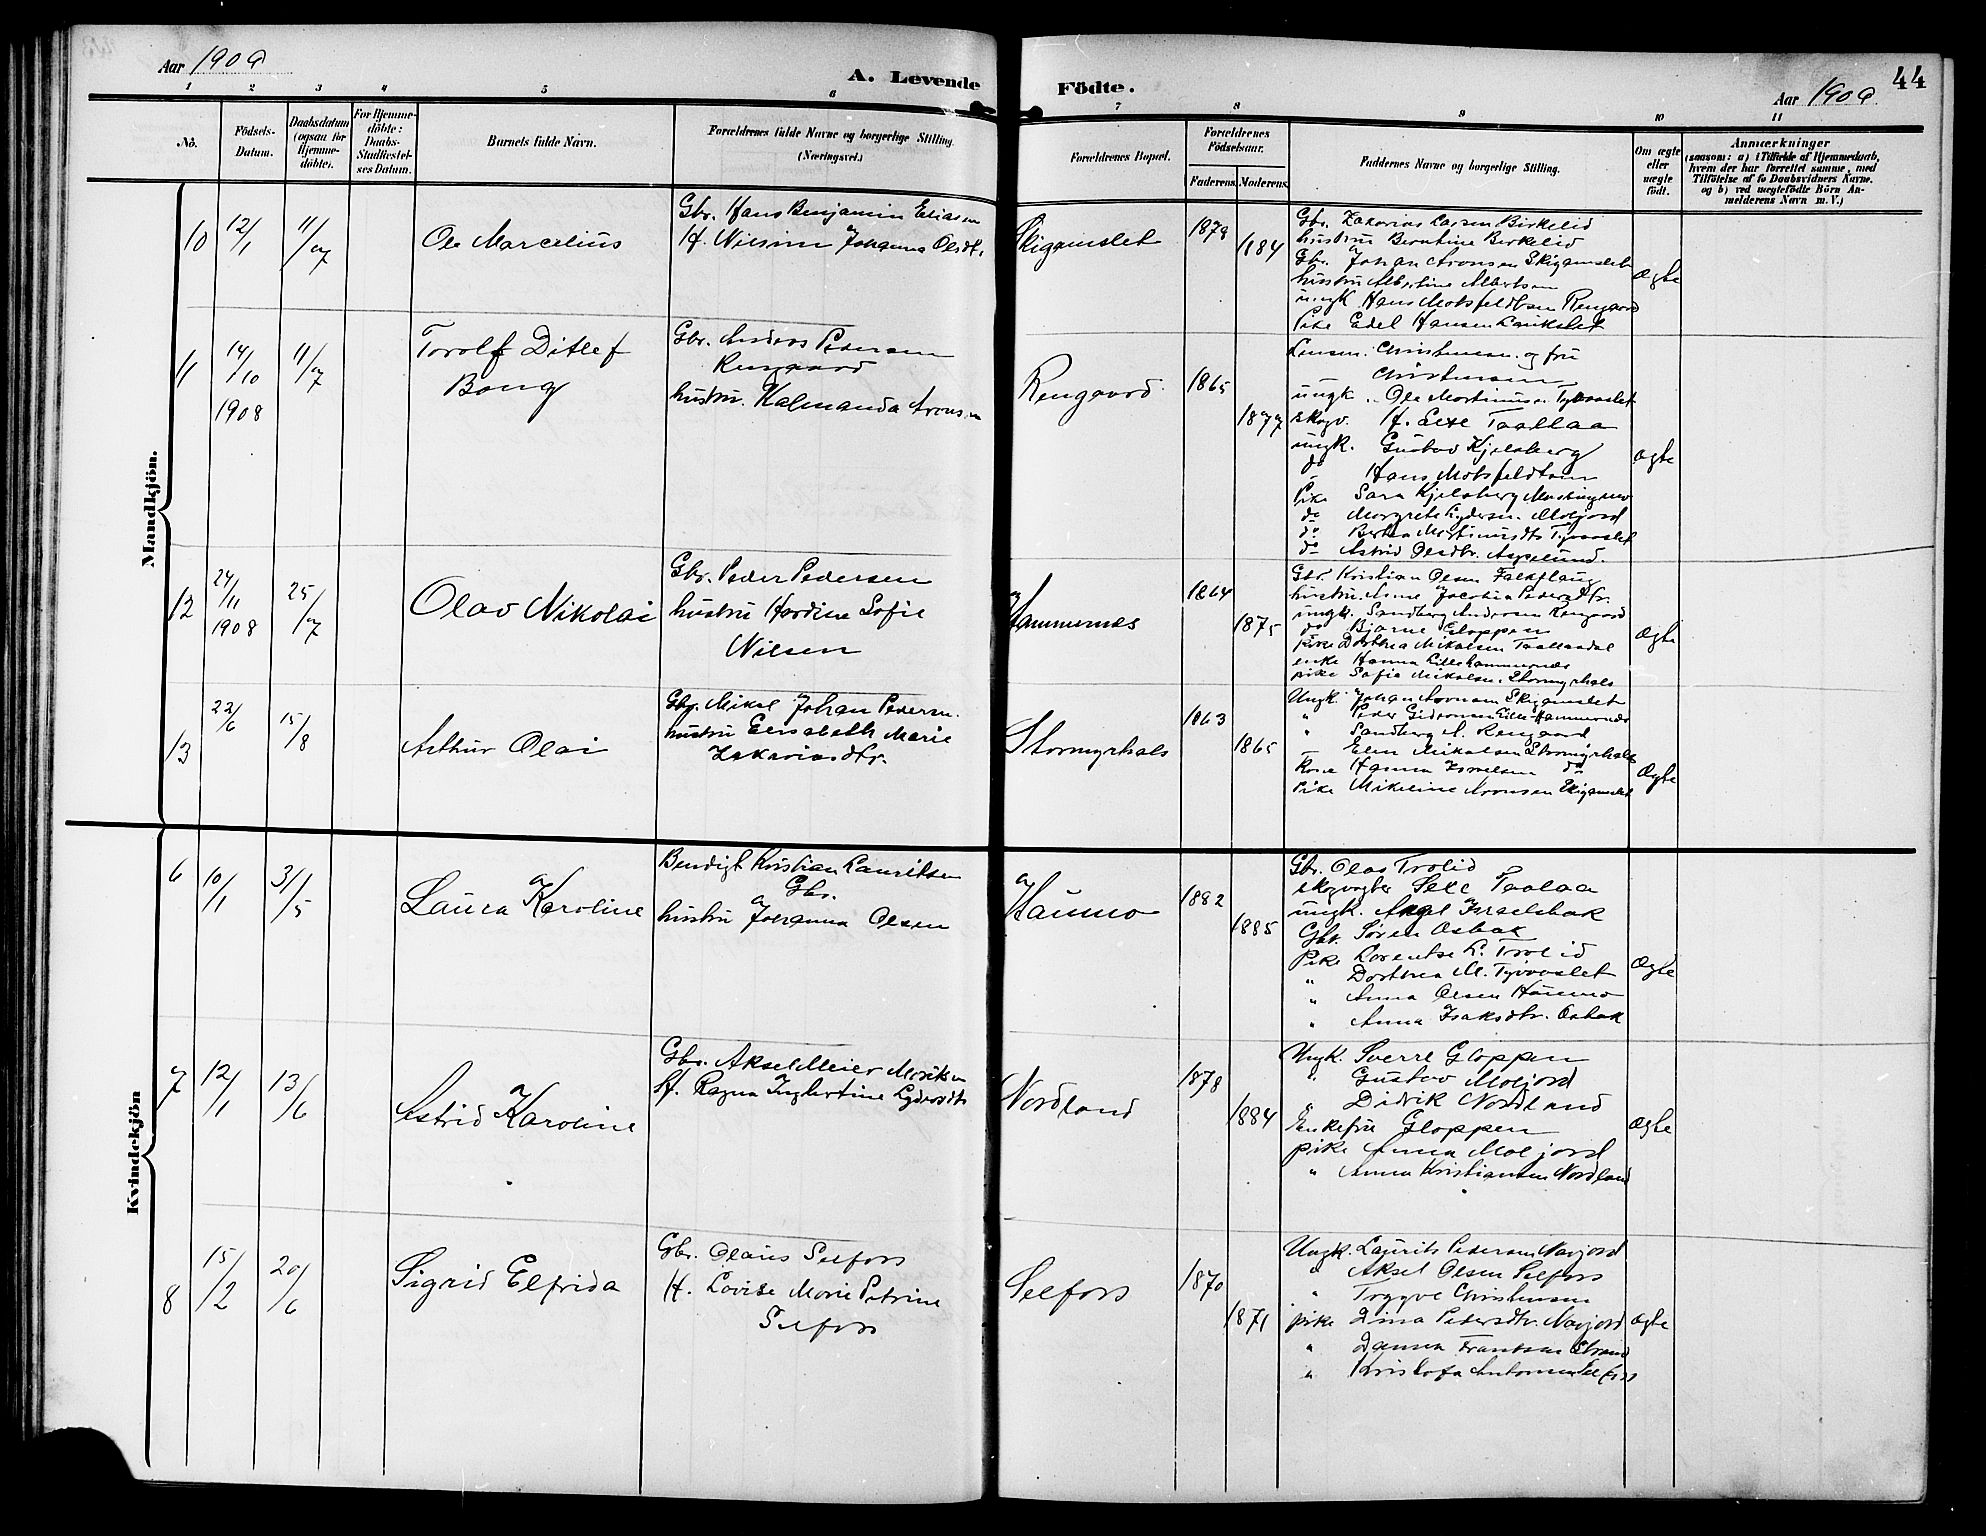 Aar 1909
A. Levende
Födte.
Aar 1909
44
1
2
3
4
5
6
7
8
9
10
11
No.
Födsels-
Datum.
Daabsdatum
(ogsaa for
Hjemme-
döbte).
For Hjemme-
döbte:
Daabs-
Stadfæstel-
ses Datum.
Barnets fulde Navn.
Forældrenes fulde Navne og borgerlige Stilling
(Næringsvei.)
Forældrenes Bopæl.
Forældrenes
Födselsaar.
Faderens.
Moderens.
Faddernes Navne og borgerlige Stilling.
Om ægte
eller
uægte
födt.
Anmærkninger
(saasom: a) i Tilfælde af Hjemmedaab,
hvem der har forrettet samme, med
Tilföielse af to Daabsvidners Navne,
og b) ved uægtefödte Börn An-
melderens Navn m. V.)
Mandkjön.
10
12/1
11/7
Ole Marcelius
Gbr. Hans Benjamin Eliasen
H. Nilsine Johanna Olsdt.
Skigamslet
1879
1884
Gbr. Zakarias Larsen Birkelid
hustru Berntine Birkelid
Gbr. Johan Aronsen Skigamslet
hustru Albertine Albertsen
ungk Hans Motsfeldtsen Rengaard
Pike Edel Hansen
Ægte
11
14/10
1908
11/7
Torolf Ditlef
Bong
Gbr. Anders Pedersen
Rengaard
hustru. Halmanda Aronsen
Rengaard.
1865
1877
Lensm. Christensen og fru
Christensen
ungk. Ole Martinusen Tyvaaslet
skogv. H. Sele Taallaa
ungk. Gustav Kjelsberg
do Hans Motsfeldtsen
Pike Sara Kjelsberg
do Margrete Lydersen. Moljord
do Berten Martinusdtr Tyvaaslet
do Astrid Olsdtr. Aspelund.
ægte
12
24/11
1908
25/7
Olav Nikolai
Gbr. Peder Pedersen
hustru Hardine Sofie
Nilsen
Hammernes
1864
1875
Gbr. Kristian Olsen Falkflaug
hustru Anne Jacobia Pedersdtr.
ungk. Sandberg Andersen Rengaard
do Bjarne Gloppen
pike Dorthea Mikalsen
enke Hanna Lillehammernæs
pike Sofie Mikalsen. Stormyrhals
Ægte
13
22/6
15/8
Arthur Olai
Gbr. Mikal Johan Pedersen.
hustru Elisabeth Marie
Zakariasdtr.
Stormyrhals
1863
1865
Ungk. Johan Aronsen Skigamslet
" Peder Gideonsen Lille-Hammernæs
" Sandberg A. Rengaard
Elen Mikalsen Stormyrhals
Kone Hanna Israelsen do
Pike Mikeline Aronsen Skigamslet
Ægte
Kvindekjön
6
10/1
31/5
Laura Karoline
Bendigt Kristian Lauritsen
Gbr.
hustru Johanna Olsen
Haumo
1882
1885
Gbr. Olas Trolid
skogvogter Sele Taalaa
ungk. Aksel Israelsbak
Gbr. Søren Osbak
Pike Lorentse L. Trolid
" Dorthea M. Tyvaaslet
" Anna Olsen Haumo
" Anna Isaksdtr. Osbak
Ægte
7
12/1
13/6
Astrid Karoline
Gbr. Aksel Meier
H. Ragna Ingbertine Lydersdtr
Nordland
1878
1884
Ungk. Sverre Gloppen
" Gustav Moljord
" Didrik Nordland
Enkefru Gloppen
pike Anna Moljord
" Anna Kristiansen Nordland
Ægte
8
15/2
20/6
Sigrid Elfrida
Gbr. Olaus Selfors
H. Lovise Marie Petrine
Selfors
Selfors
1870
1871
Ungk. Laurits Pedersen Navjord
" Aksel Olsen Selfors
" Trygve Christensen
pike Dina Pedersdtr. Navjord
" Danna Frantsen Strand
" Kristofa Antonsen Selfors
ægte